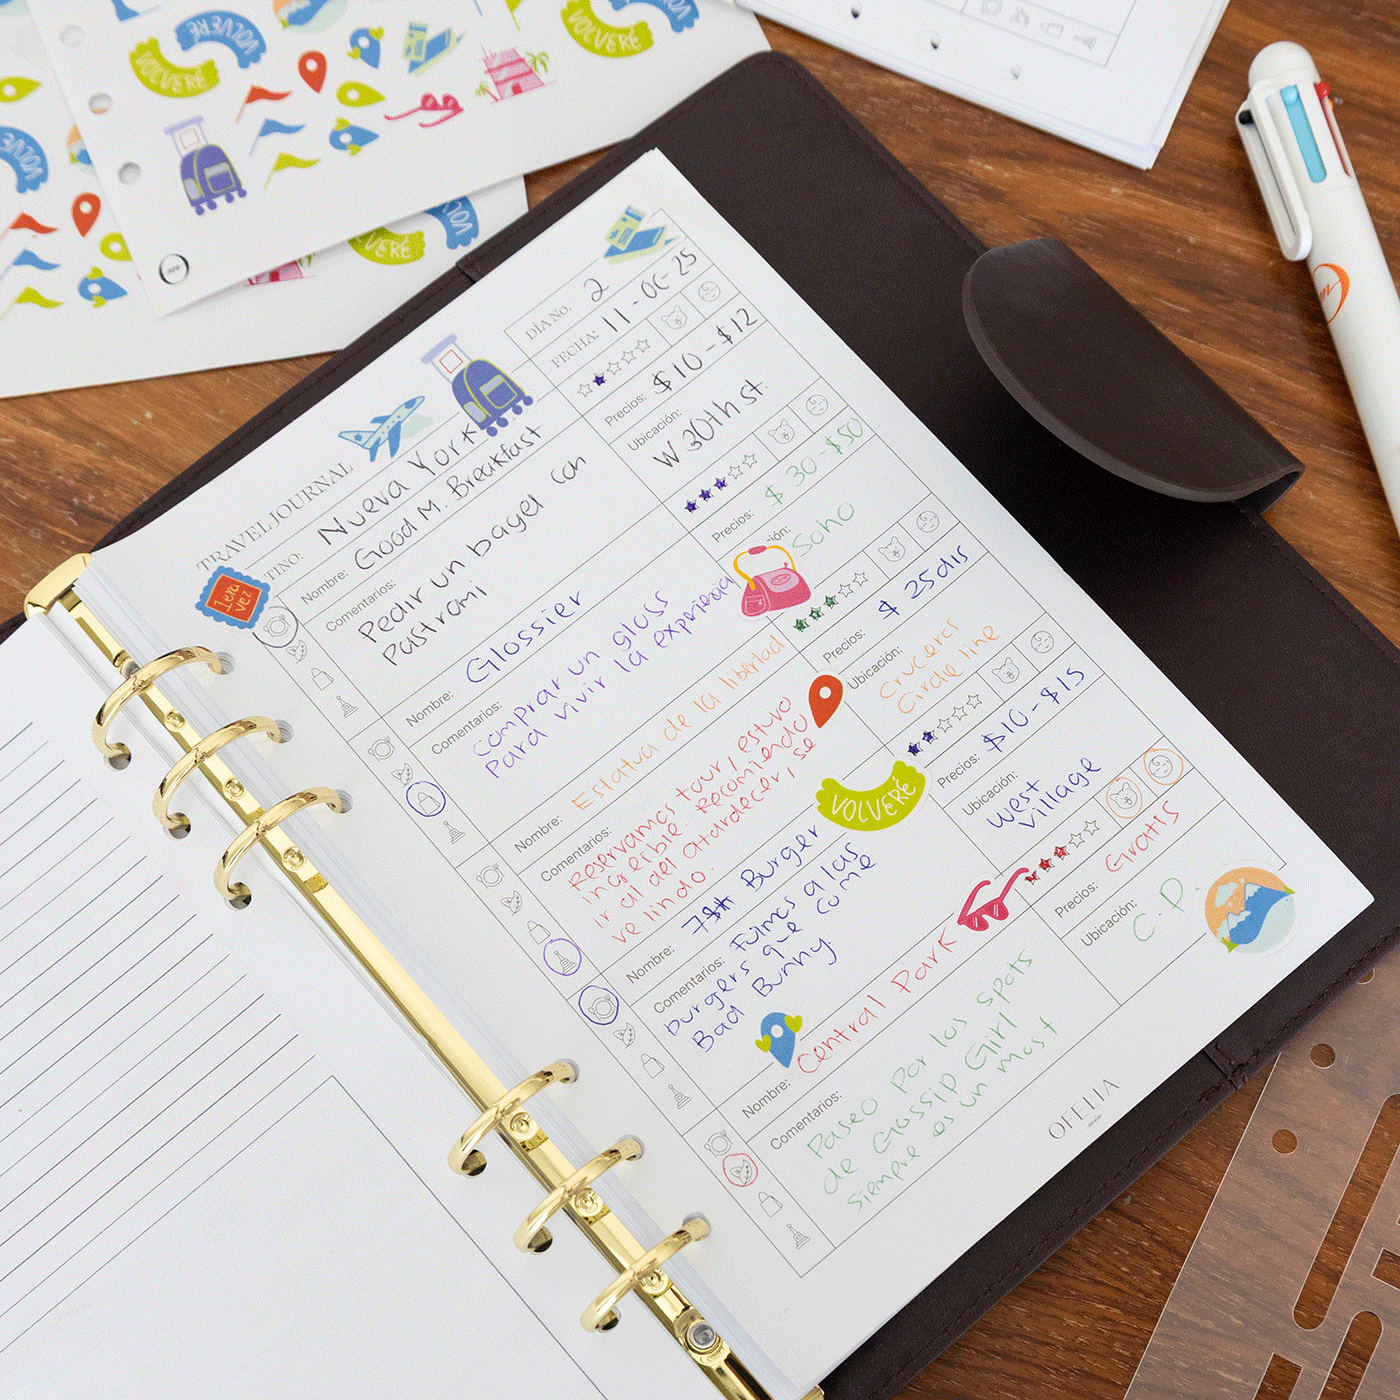 VOLVERÉ
VOLVERÉ
VOLVERÉ
VOLVERÉ
VOLVERÉ
VOLVERÉ
VOLVERÉ
TRAVEL JOURNAL
DÍA No. 2
FECHA: 11-OC-25
TINO: Nueva York
1era
vez
Nombre: Good M. Breakfast
Precios: $10-$12
Comentarios:
Pedir un bagel con
Pastrami
Ubicación:
W 30th st.
Nombre: Glossier
Precios: $30-$50
Comentarios:
Comprar un gloss
Para vivir la expriecia
ión:
Soho
Nombre: Estatua de la libertad
Precios: $ 25 dls
Comentarios:
Reservamos tour, estuvo
increible. Recomiendo
ir al del atardecer, se
ve lindo.
Ubicación:
Cruceros
Circle line
VOLVERÉ
Nombre: 7th Burger
Precios: $10-$15
Comentarios: Fuimos a las
burgers que come
Bad Bunny
Ubicación:
West
Village
Nombre: Central Park
Precios: Gratis
Comentarios:
Paseo Por los spots
de Gossip Girl
siempre es un must
Ubicación:
C.P.
OFELIA